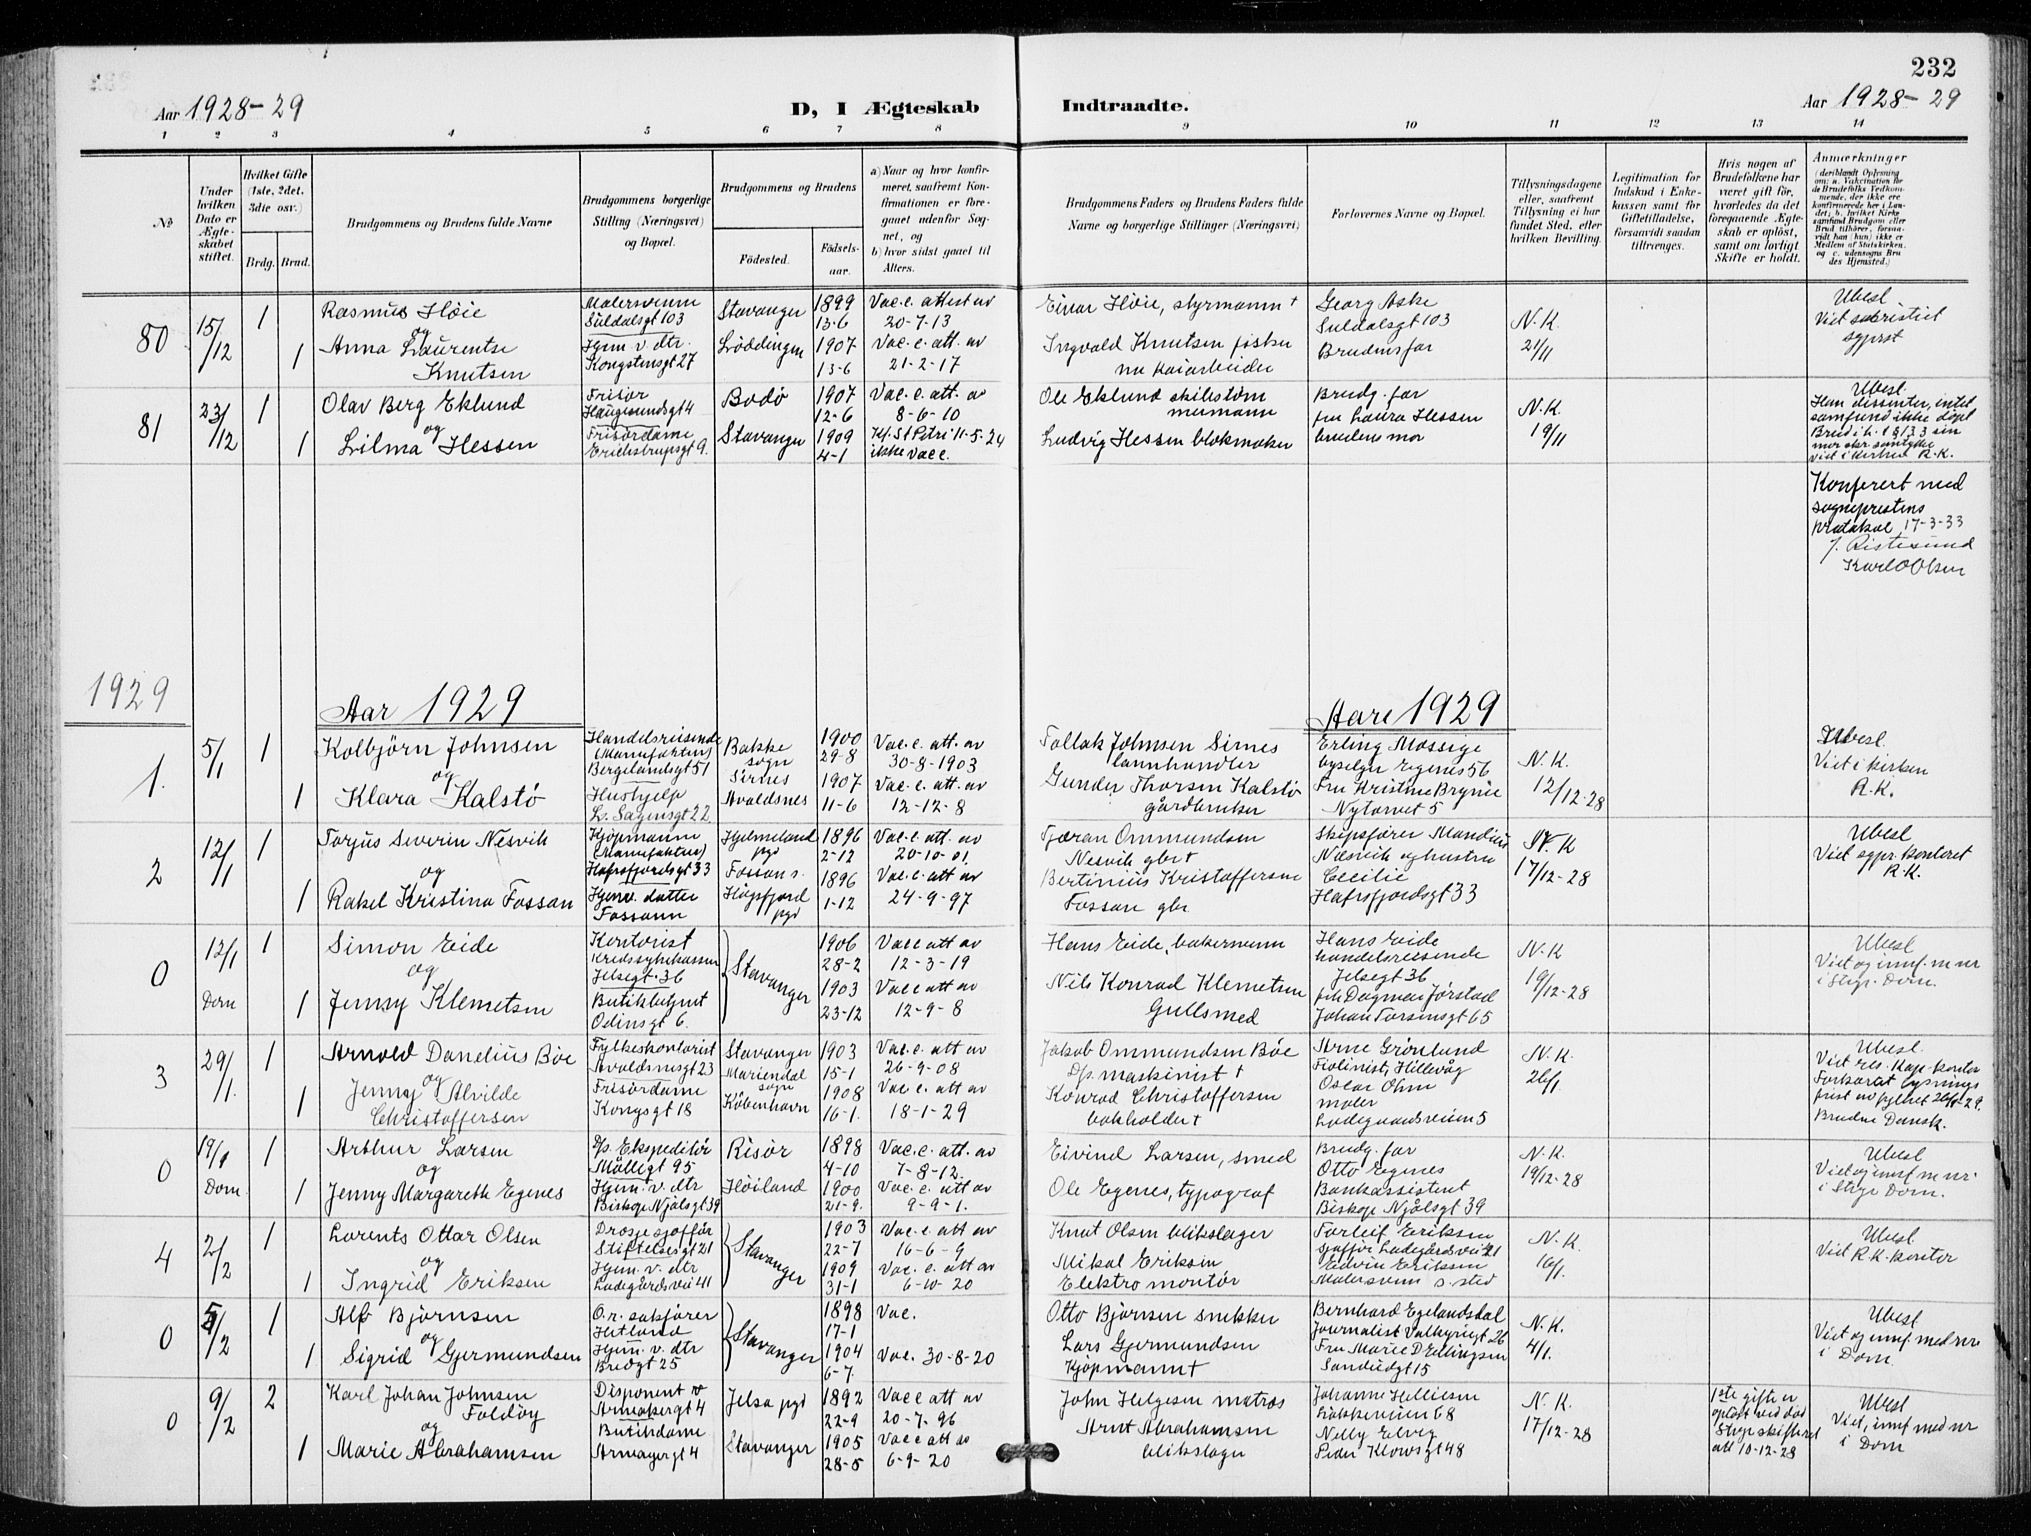 232
Aar 1928-29
D, I Ægteskab
Indtraadte.
Aar 1928-29
1 2 3 4 5 6 7 8 9 10 11 12 13 14
No
Under hvilken Dato er Ægteskabet stiftet.
Hvilket Gifte (1ste, 2det, 3die osv.)
Brdg. Brud.
Brudgommens og Brudens fulde Navne
Brudgommens borgerlige Stilling (Næringsvei) og Bopæl.
Brudgommens og Brudens
Födested.
Födselsaar.
a) Naar og hvor konfirmeret, saafremt Konfirmationen er foregaaet udenfor Sognet, og
b) hvor sidst gaaet til Alters.
Brudgommens Faders og Brudens Faders fulde Navne og borgerlige Stillinger (Næringsvei)
Forlovernes Navne og Bopæl.
Tillysningsdagene eller, saafremt Tillysning ei har fundet Sted, efter hvilken Bevilling.
Legitimation for Indskud i Enkekassen samt for Giftetilladelse, forsaavidt saadan tiltrænges.
Hvis nogen af Brudefolkene har været gift för, hvorledes da det foregaaende Ægteskab er oplöst, samt om lovligt Skifte er holdt.
Anmærkninger
(deriblandt Oplysning om: a. Vaccination for de Brudefolks Vedkommende, der ikke ere konfirmerede her i Landet; b. hvilket Kirkesamfund Brudgom eller Brud tilhører, forsaavidt han (hun) ikke er Medlem af Statskirken, og c. udensogns Brudes Hjemsted.)
80
15/12
1
Rasmus Höie
og
1
Anna Laurentse
Knutsen
Malersvenn
Suldalsgt 103
Hjem. v. dtr
Kongstensgt 27
Stavanger
Löddingen
1899
13-6
1907
13-6
Vac. c. attest av
20-7-13
Vac. c. att. av
21-2-17
Einar Höie, styrmann +
Ingvald Knutsen fisker
nu kaiarbeider
Georg Aske
Suldalsgt 103
Brudens far
N.K.
21/11
Ubesl
Viet sakristiet
sgprst
81
23/12
1
Olav Berg Eklund
og
1
Lilma Hessen
Frisör
Haugesundsgt 4
Frisördame
Erichstrupsgt 9.
Bodö
Stavanger
1907
12-6
1909
4-1
Vac. c. att. av
8-6-10
Kf. St Petri 11-5-24
ikke vacc.
Ole Eklund skibstöm
mermann
Ludvig Hessen blokmaker
Brudg. far
fru Laura Hessen
brudens mor
N.K.
19/11
Ubesl.
Hem dissenter, intet
samfund ikke döpt
mor skr. samtykke
viet i kirken R.K.
Konferert med
sogneprestens
protokol 17-3-33
J. Ristesund
Karl O Olsen
1929
Aar 1929
Aaret 1929
1.
5/1
1
Kolbjörn Johnsen
og
1
Klara Kalstö
Handelsreisende
(Manufaktur)
Bergelandsgt 51
Hushjelp
L. Sagensgt 22
Bakke
sogn
Sirnes
Avaldsnes
1900
29-8
1907
11-6
Vac. c. att. av
30-8-1903
Vac. c. att. av
12-12-8
Tollak Johnsen Sirnes
lannhandler
Gunder Thorsen Kalstö
gårdbruker
Erling Mossige
byselger Egenes 56
Fru Kristine Bryne
Nytorvet 5
N.K.
12/12-28
Ubesl.
Viet i kirken
R.K.
2
12/1
1
Torjus Severin Nesvik
og
1
Rakel Kristina Fossan
Kjöpmann
(Manufaktur)
Hafrsfjordsgt 33
Hjemv. datter
Fossann
Hjelmeland
pgd
Fossan s.
Högsfjord
pgd
1896
2-12
1896
1-12
Vac. c. att. av
20-10-01.
Vac. c. att. av
24-9-97
Tjæran Ommundsen
Nesvik gbr +
Bertinius Kristoffersen
Fossan gbr
Skipsförer Mandius
Nesvik og hustru
Cecilie
Hafrsfjordsgt 33
N.K
17/12-28
Ubesl
Viet sgpr. kontoret
R.K.
0
12/1
Dom
1
Simon Eide
og
1
Jenny Klemetsen
Kontorist
Kredssykekassen
Jelsegt. 36
Butikbetjent
Odinsgt 6.
Stavanger
1906
28-2
1903
23-12
Vacc att av
12-3-19
Vacc att av
12-9-8
Hans Eide, bakersvenn
Nils Konrad Klemetsen
Gullsmed
Hans Eide
handelsreisende
Jelsegt 36
frk Dagmar Jörstad
Johan Torsensgt 65
N.K
19/12-28
Ubesl
Viet og innf. m nr
i Stgr. Dom.
3
29/1.
1
Arnold Danelius Böe
og
1
Jenny Alvilde
Christoffersen
Fylkeskontorist
Avaldsnesgt 23
Frisördame
Kongsgt 18
Stavanger
Mariendal
sogn
Köbenhavn
1903
15-1
1908
16-1.
Vac. c. att av
26-9-08
Vac c. att. av
18-1-29
Jakob Ommundsen Böe
D/s. maskinist +
Konrad Christoffersen
bokholder +
Arne Grönlund
Fiolinist, Hillevåg
Oscar Ohm
maler
Ladegaardsveien 5
N.K.
26/1.
Ubesl.
Viet res. Kap. kontor
Forkortet lysnings
frist av fylket 26/1-29.
Bruden Dansk.
0
19/1
Dom.
1
Arthur Larsen
og
1
Jenny Margareth Egenes
D/s. Ekspeditör
Möllegt 95
Hjem. v. dtr
Biskop Njålsgt 39
Risör
Höiland
1898
4-10
1900
21-9.
Vac. c. att. av
7-8-12.
Vac. c. att av
9-9-1.
Eivind Larsen, smed
Ole Egenes, typograf
Brudg. far
Otto Egenes
Bankassistent
Biskop Njålsgt 39
N.K.
19/12-28
Ubesl
Viet og innf. m nr.
i Stgr Dom.
4
2/2
1
Lorents Ottar Olsen
og
1
Ingrid Eriksen
Drosjesjofför
Stiftelsesgt 21
Hjem. v. dtr
Ladegårdsvei 41
Stavanger
1903
22-7
1909
31-1
Vac. c. att av
16-6-9
Vac. c. att av
6-10-20
Knut Olsen blikslager
Mikal Eriksen
Elektromontör
Torleif Eriksen
sjofför Ladegårdsvei 21
Edvin Eriksen
Malersvenn s. sted
N.K.
16/1.
Ubesl.
Viet R.K. kontor
0
5/2
1
Alf Björnsen
og
1
Sigrid Gjermundsen
O.r. sakförer
Hetland
Hjem. v. dtr
Bredgt 25
Stavanger
1898
17-1
1904
6-7.
Vac.
Vac. 30-8-20
Otto Björnsen snekker
Lars Gjermundsen
Kjöpmann +
Bernhard Egelandsdal
Journalist Valkyrigt 26
Fru Marie D Ellingsen
Sandvedgt 15
N.K.
4/1.
Ubesl
Viet og innf. med nr
i Dom.
0
9/2
2
Karl Johan Johnsen
Foldöy
og
1
Marie Abrahamsen
Disponent
Armagergt 4
Butikdame
Armagergt 4
Jelsa pgd
Stavanger
1892
22-9
1905
28-5
Vacc att av
20-7-96
Vacc att av
6-9-20
John Helgesen matros
Arnt Abrahamsen
blikslager
Johanne Helliesen
Lökkeveien 68
Nelly Elvig
Peder Klowsgt 48
N.K.
17/12-28
1ste gifte er
oplöst ved död
Stvgr skifteret
att 10-12-28
Ubesl
Viet, innf. med nr
i Dom